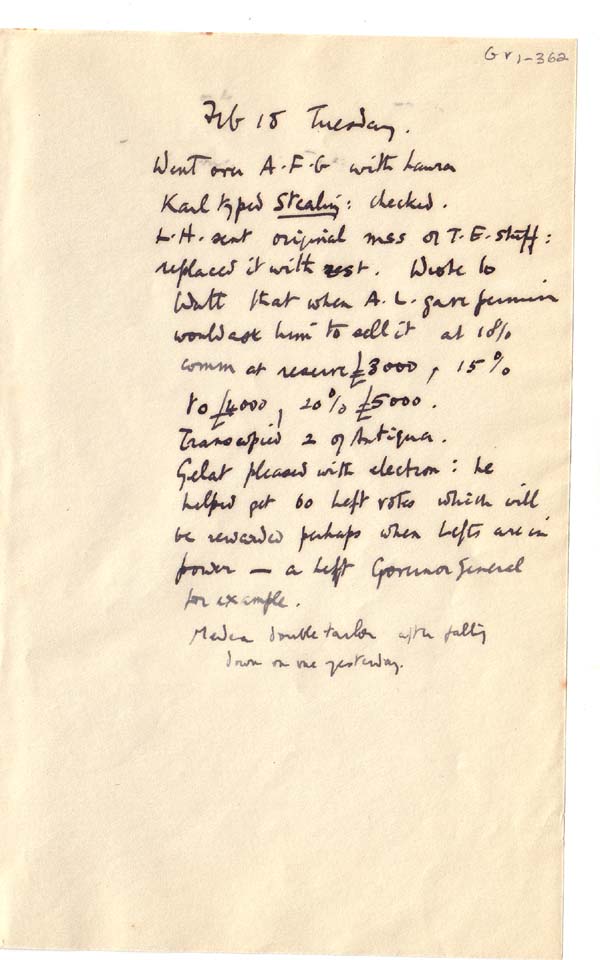 GV1-362
Feb 18 Tuesday.
Went over A.F.G with Laura
Karl typed Stealing: checked.
L.H. sent original mss of T.E. stuff:
replaced it with rest. Wrote to
Watt that when A.L. gave permission
would ask him to sell it at 10%
comm at reserve £3000, 15%
to £4000, 20% £5000.
Transcopied 2 of Antigua.
Gelat pleased with election: he
helped get 60 Left votes which will
be rewarded perhaps when Lefts are in
power — a Left Governor General
for example.
double after falling
down on one yesterday.